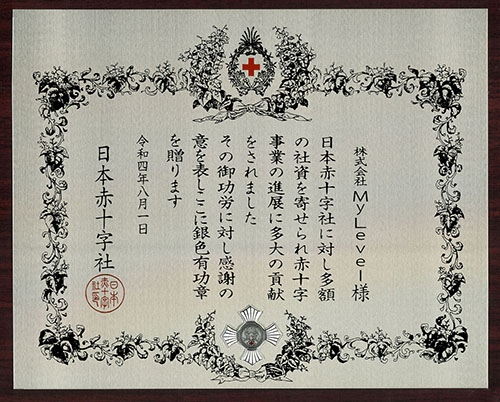 株式会社MyLevel様
日本赤十字社に対し多額
の社資を寄せられ赤十字
事業の進展に多大の貢献
をされました
その御功労に対し感謝の
意を表しここに銀色有功章
を贈ります
令和四年八月一日
日本赤十字社
日本
赤十字
社長